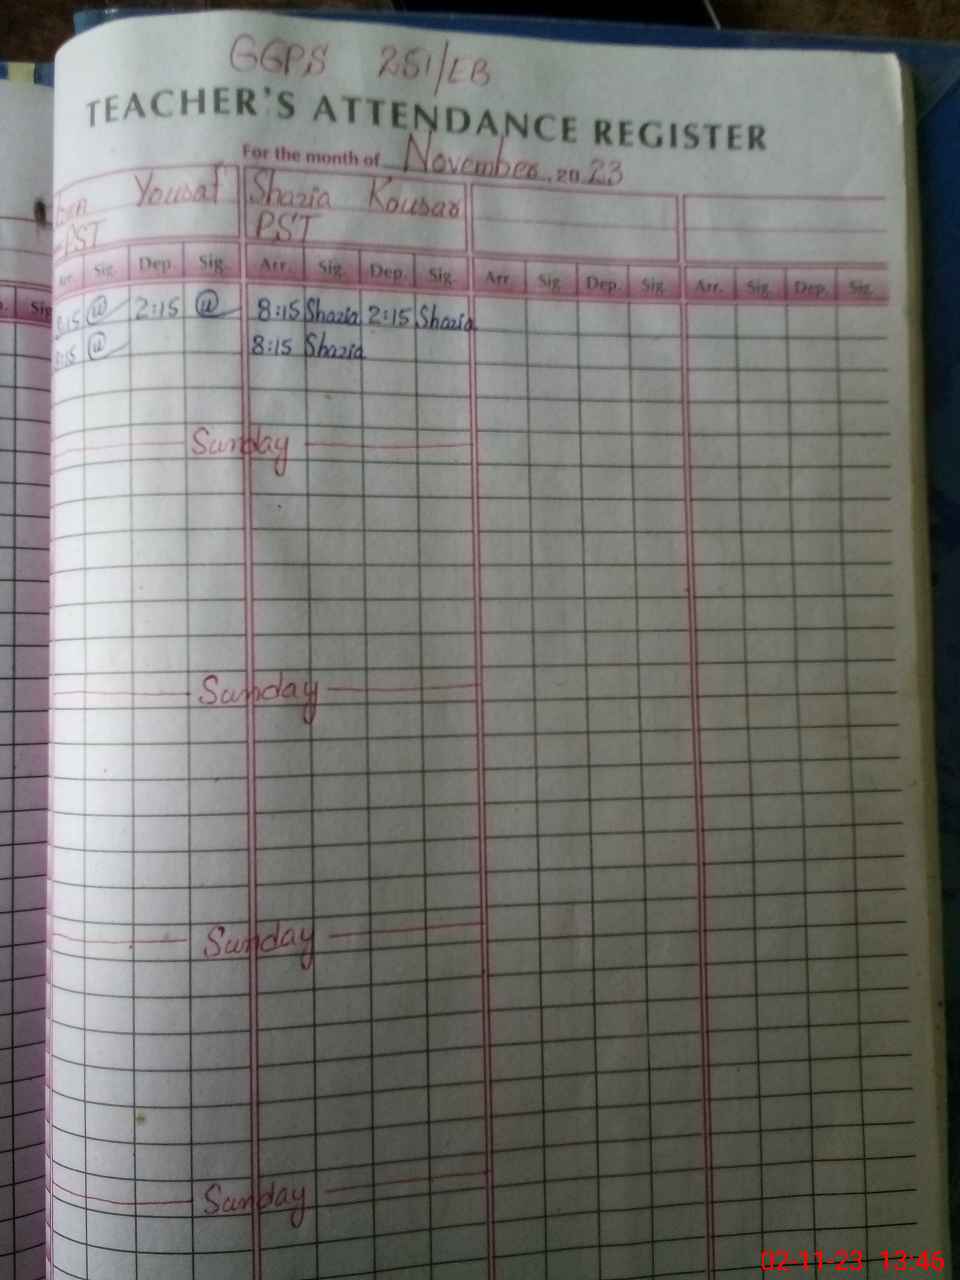 GGPS 251/EB
TEACHER'S ATTENDANCE REGISTER
For the month of November, 2023
Yousaf Shazia Kousar
PST PST
Sig Arr. Sig. Dep. Sig. Arr. Sig. Dep. Sig. Arr. Sig. Dep. Sig. Arr. Sig. Dep. Sig.
8:15 2:15 8:15 Shazia 2:15 Shazia
8:15 8:15 Shazia
Sunday
Sunday
Sunday
Sunday
02-11-23 13:46